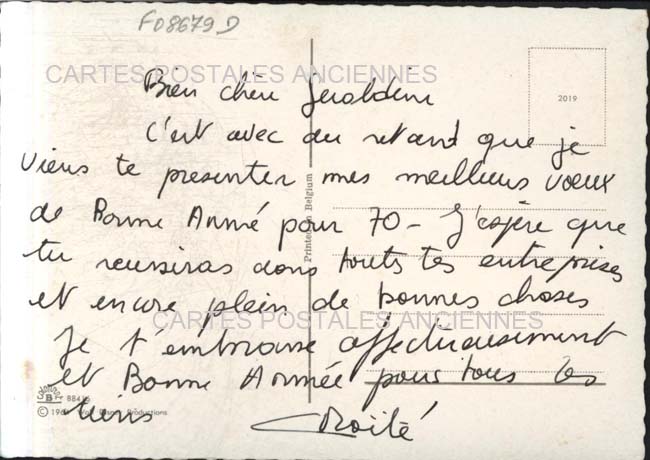 F08679D
CARTES POSTALES ANCIENNES
Bien chère Geraldine
2019
C'est avec du retard que je
viens te presenter mes meilleurs voeux
de Bonne Année pour 70 - J'espère que
tu reussiras dans touts tes entreprises
et encore plein de bonnes choses
Printed in Belgium
CARTES POSTALES ANCIENNES
Je t'embrasse affectueusement
et Bonne Année pour tous les
tiens
B 884
© 196 Walt Disney Productions